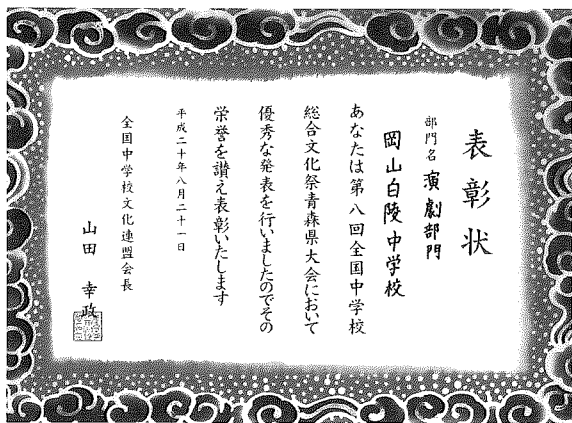 表彰状
部門名 演劇部門
岡山白陵中学校
あなたは第八回全国中学校
総合文化祭青森県大会において
優秀な発表を行いましたのでその
栄誉を讃え表彰いたします
平成二十年八月二十一日
全国中学校文化連盟会長
山田 幸政